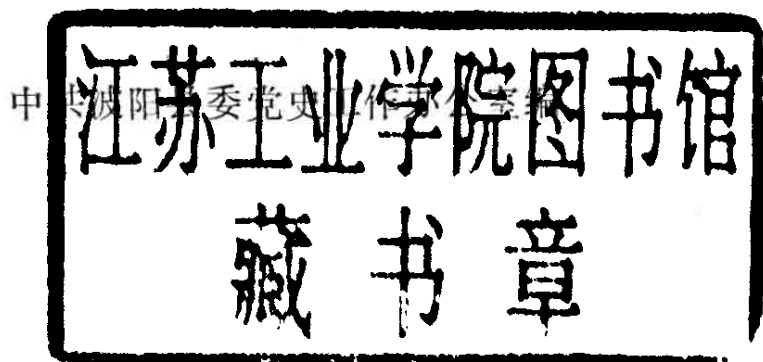 中共波阳县委党史工作办公室编
江苏工业学院图书馆
藏书章